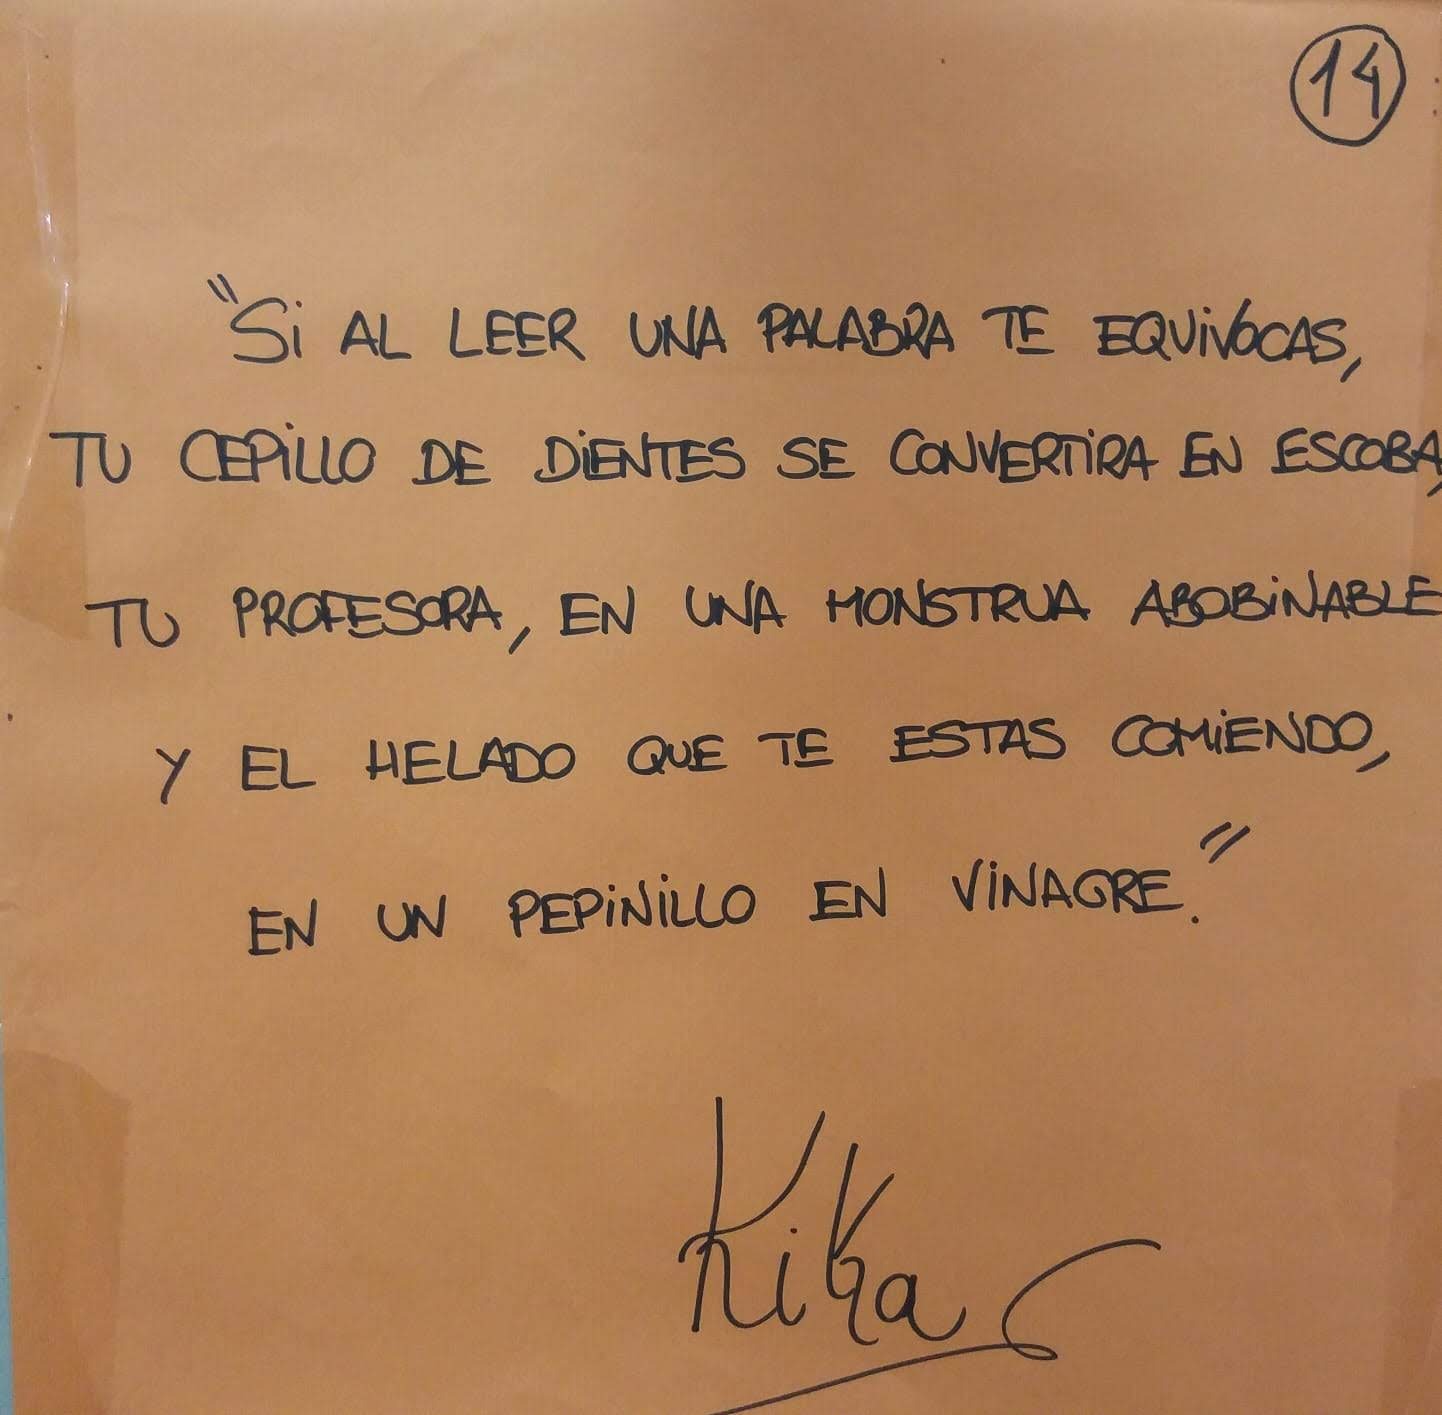 14
"Si AL LEER UNA PALABRA TE EQUiVOCAS,
TU CEPiLLO DE DiENTES SE CONVERTiRA EN ESCOBA,
TU PROFESORA, EN UNA MONSTRUA ABOBiNABLE
Y EL HELADO QUE TE ESTAS COMiENDO,
EN UN PEPiNiLLO EN ViNAGRE."
Kika